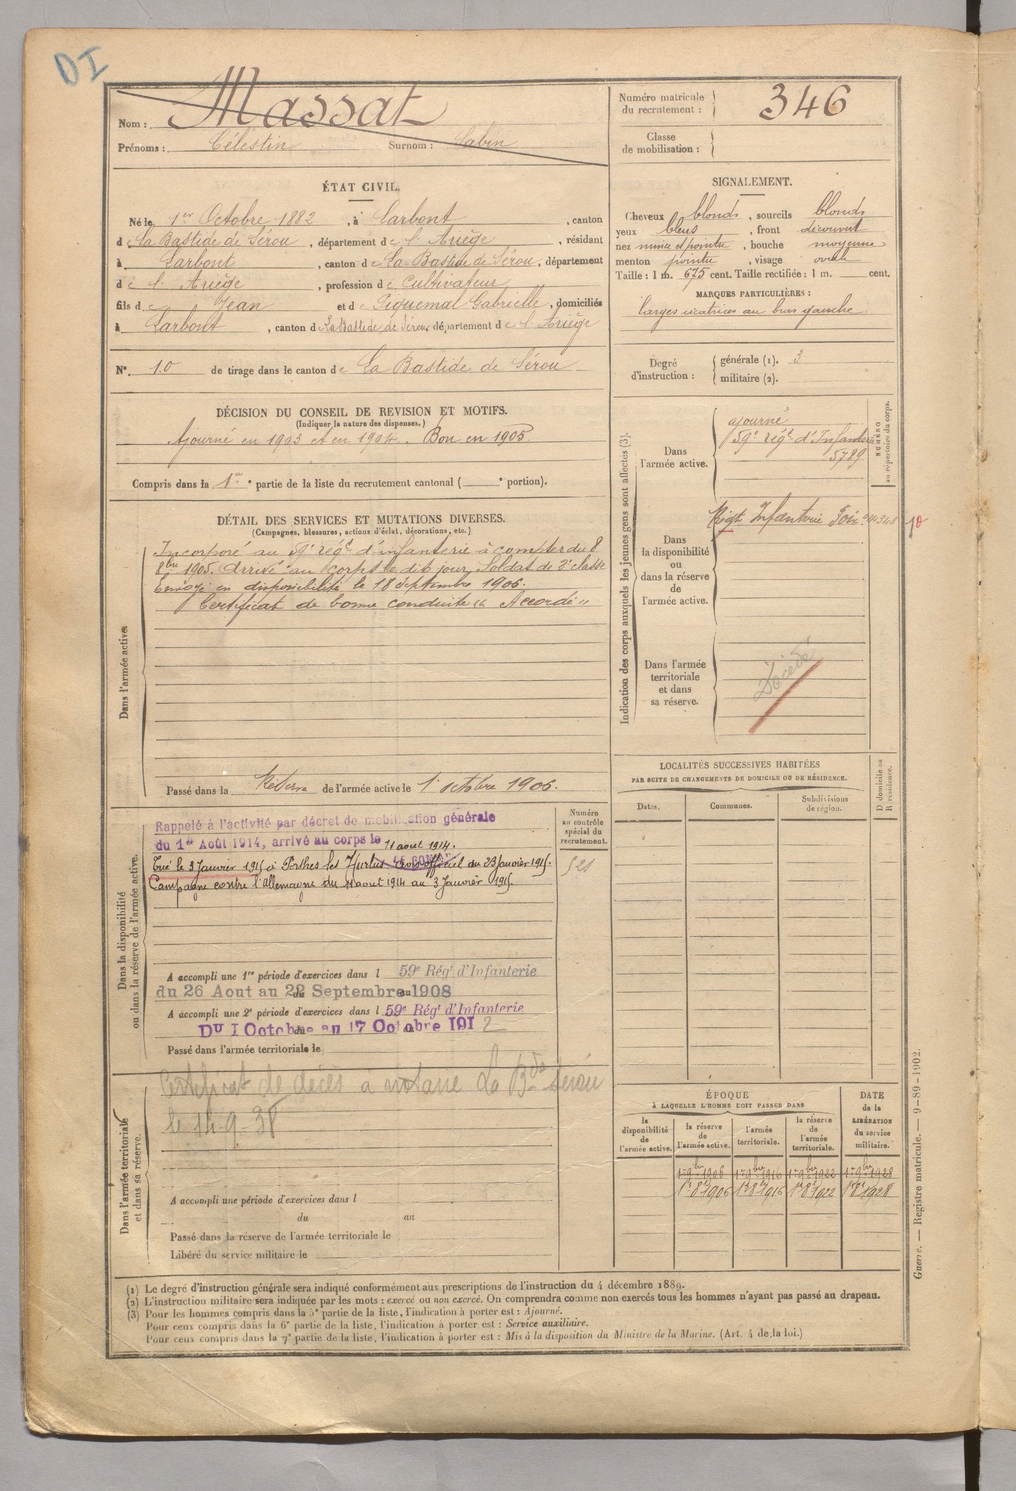 DI
Nom : Massat
Prénoms : Célestin Surnom : Sabin
Numéro matricule du recrutement : 346
Classe de mobilisation :
ÉTAT CIVIL.
Né le 1er Octobre 1882, à Larbont, canton
d e La Bastide de Sérou, département de l'Ariège, résidant
à Larbont, canton de La Bastide de Sérou, département
d e l'Ariège, profession de Cultivateur
fils de Jean et de Piquemal Gabrielle, domiciliés
à Larbont, canton de La Bastide de Sérou, département de l'Ariège
N° 10 de tirage dans le canton de La Bastide de Sérou
SIGNALEMENT.
Cheveux blonds, sourcils blonds
yeux bleus, front découvert
nez mince et pointu, bouche moyenne
menton pointu, visage ovale
Taille : 1 m. 675 cent. Taille rectifiée : 1 m. cent.
MARQUES PARTICULIÈRES :
larges cicatrices au bras gauche
Degré d'instruction : générale (1). 3
militaire (2).
DÉCISION DU CONSEIL DE REVISION ET MOTIFS.
(Indiquer la nature des dispenses.)
Ajourné en 1903 et en 1904. Bon en 1905.
Compris dans la 1re partie de la liste du recrutement cantonal ( e portion).
Indication des corps auxquels les jeunes gens sont affectés (3).
NUMÉRO au répertoire du corps.
Dans l'armée active.
ajourné
59e régt d'Infanterie
5789
Dans la disponibilité ou dans la réserve de l'armée active.
Régt Infanterie Foix
Dans l'armée territoriale et dans sa réserve.
Décédé
DÉTAIL DES SERVICES ET MUTATIONS DIVERSES.
(Campagnes, blessures, actions d'éclat, décorations, etc.)
Dans l'armée active.
Incorporé au 59e régt d'infanterie à compter du 8
8bre 1905. Arrivé au corps le dit jour, Soldat de 2e classe
Envoyé en disponibilité le 18 septembre 1906.
Certificat de bonne conduite "Accordé"
Passé dans la Réserve de l'armée active le 1er octobre 1906.
LOCALITÉS SUCCESSIVES HABITÉES
PAR SUITE DE CHANGEMENTS DE DOMICILE OU DE RÉSIDENCE.
Dates.
Communes.
Subdivisions de région.
D domicile ou R résidence.
Dans la disponibilité ou dans la réserve de l'armée active.
Numéro au contrôle spécial du recrutement.
521
Rappelé à l'activité par décret de mobilisation générale
du 1er Août 1914, arrivé au corps le 11 aout 1914.
Tué le 3 Janvier 1915 à Perthes les Hurlus officiel du 23 Janvier 1915.
Campagne contre l'Allemagne du 11 aout 1914 au 3 Janvier 1915.
A accompli une 1re période d'exercices dans l 59e Régt d'Infanterie
du 26 Aout au 22 Septembre 1908
A accompli une 2e période d'exercices dans l 59e Régt d'Infanterie
DU 1 Octobre au 17 Octobre 1912
Passé dans l'armée territoriale le
Dans l'armée territoriale et dans sa réserve.
Certificat de décès a notaire La Bde Sérou
le 14-9-38
A accompli une période d'exercices dans l
du au
Passé dans la réserve de l'armée territoriale le
Libéré du service militaire le
ÉPOQUE
À LAQUELLE L'HOMME DOIT PASSER DANS
la disponibilité de l'armée active.
la réserve de l'armée active.
l'armée territoriale.
la réserve de l'armée territoriale.
DATE de la LIBÉRATION du service militaire.
1er 9bre 1906 1er 9bre 1916 1er 9bre 1922 1er 9bre 1928
1er 8bre 1906 1er 8bre 1916 1er 8bre 1922 1er 8bre 1928
Guerre. — Registre matricule. — 9-89-1902.
(1) Le degré d'instruction générale sera indiqué conformément aux prescriptions de l'instruction du 4 décembre 1889.
(2) L'instruction militaire sera indiquée par les mots : exercé ou non exercé. On comprendra comme non exercés tous les hommes n'ayant pas passé au drapeau.
(3) Pour les hommes compris dans la 5e partie de la liste, l'indication à porter est : Ajourné.
Pour ceux compris dans la 6e partie de la liste, l'indication à porter est : Service auxiliaire.
Pour ceux compris dans la 7e partie de la liste, l'indication à porter est : Mis à la disposition du Ministre de la Marine. (Art. 4 de la loi.)